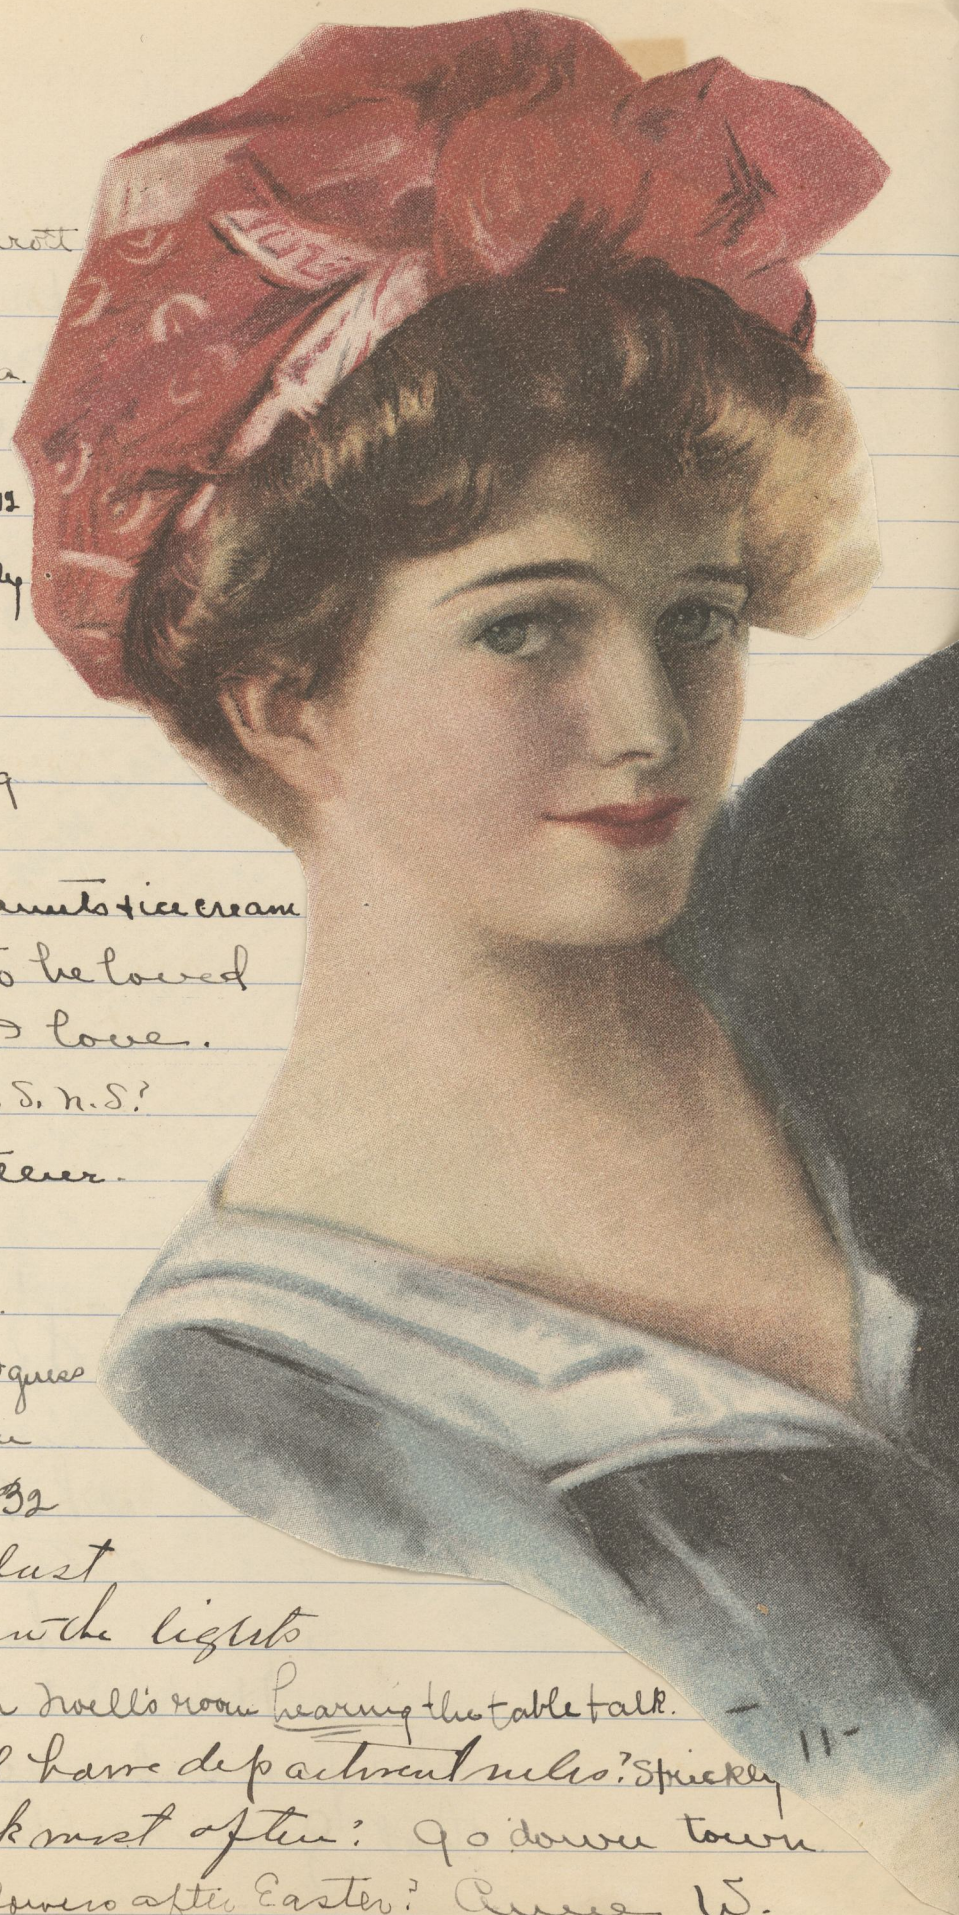 rott
a.
ly
g
anuts + ice cream
to be loved
love.
S. N. S.?
guess
32
last
the lights
Nvell's room hearing the table talk.
home department rules? Strickly
k most often? Go down town
lowers after Easter? Anne W.
-11-